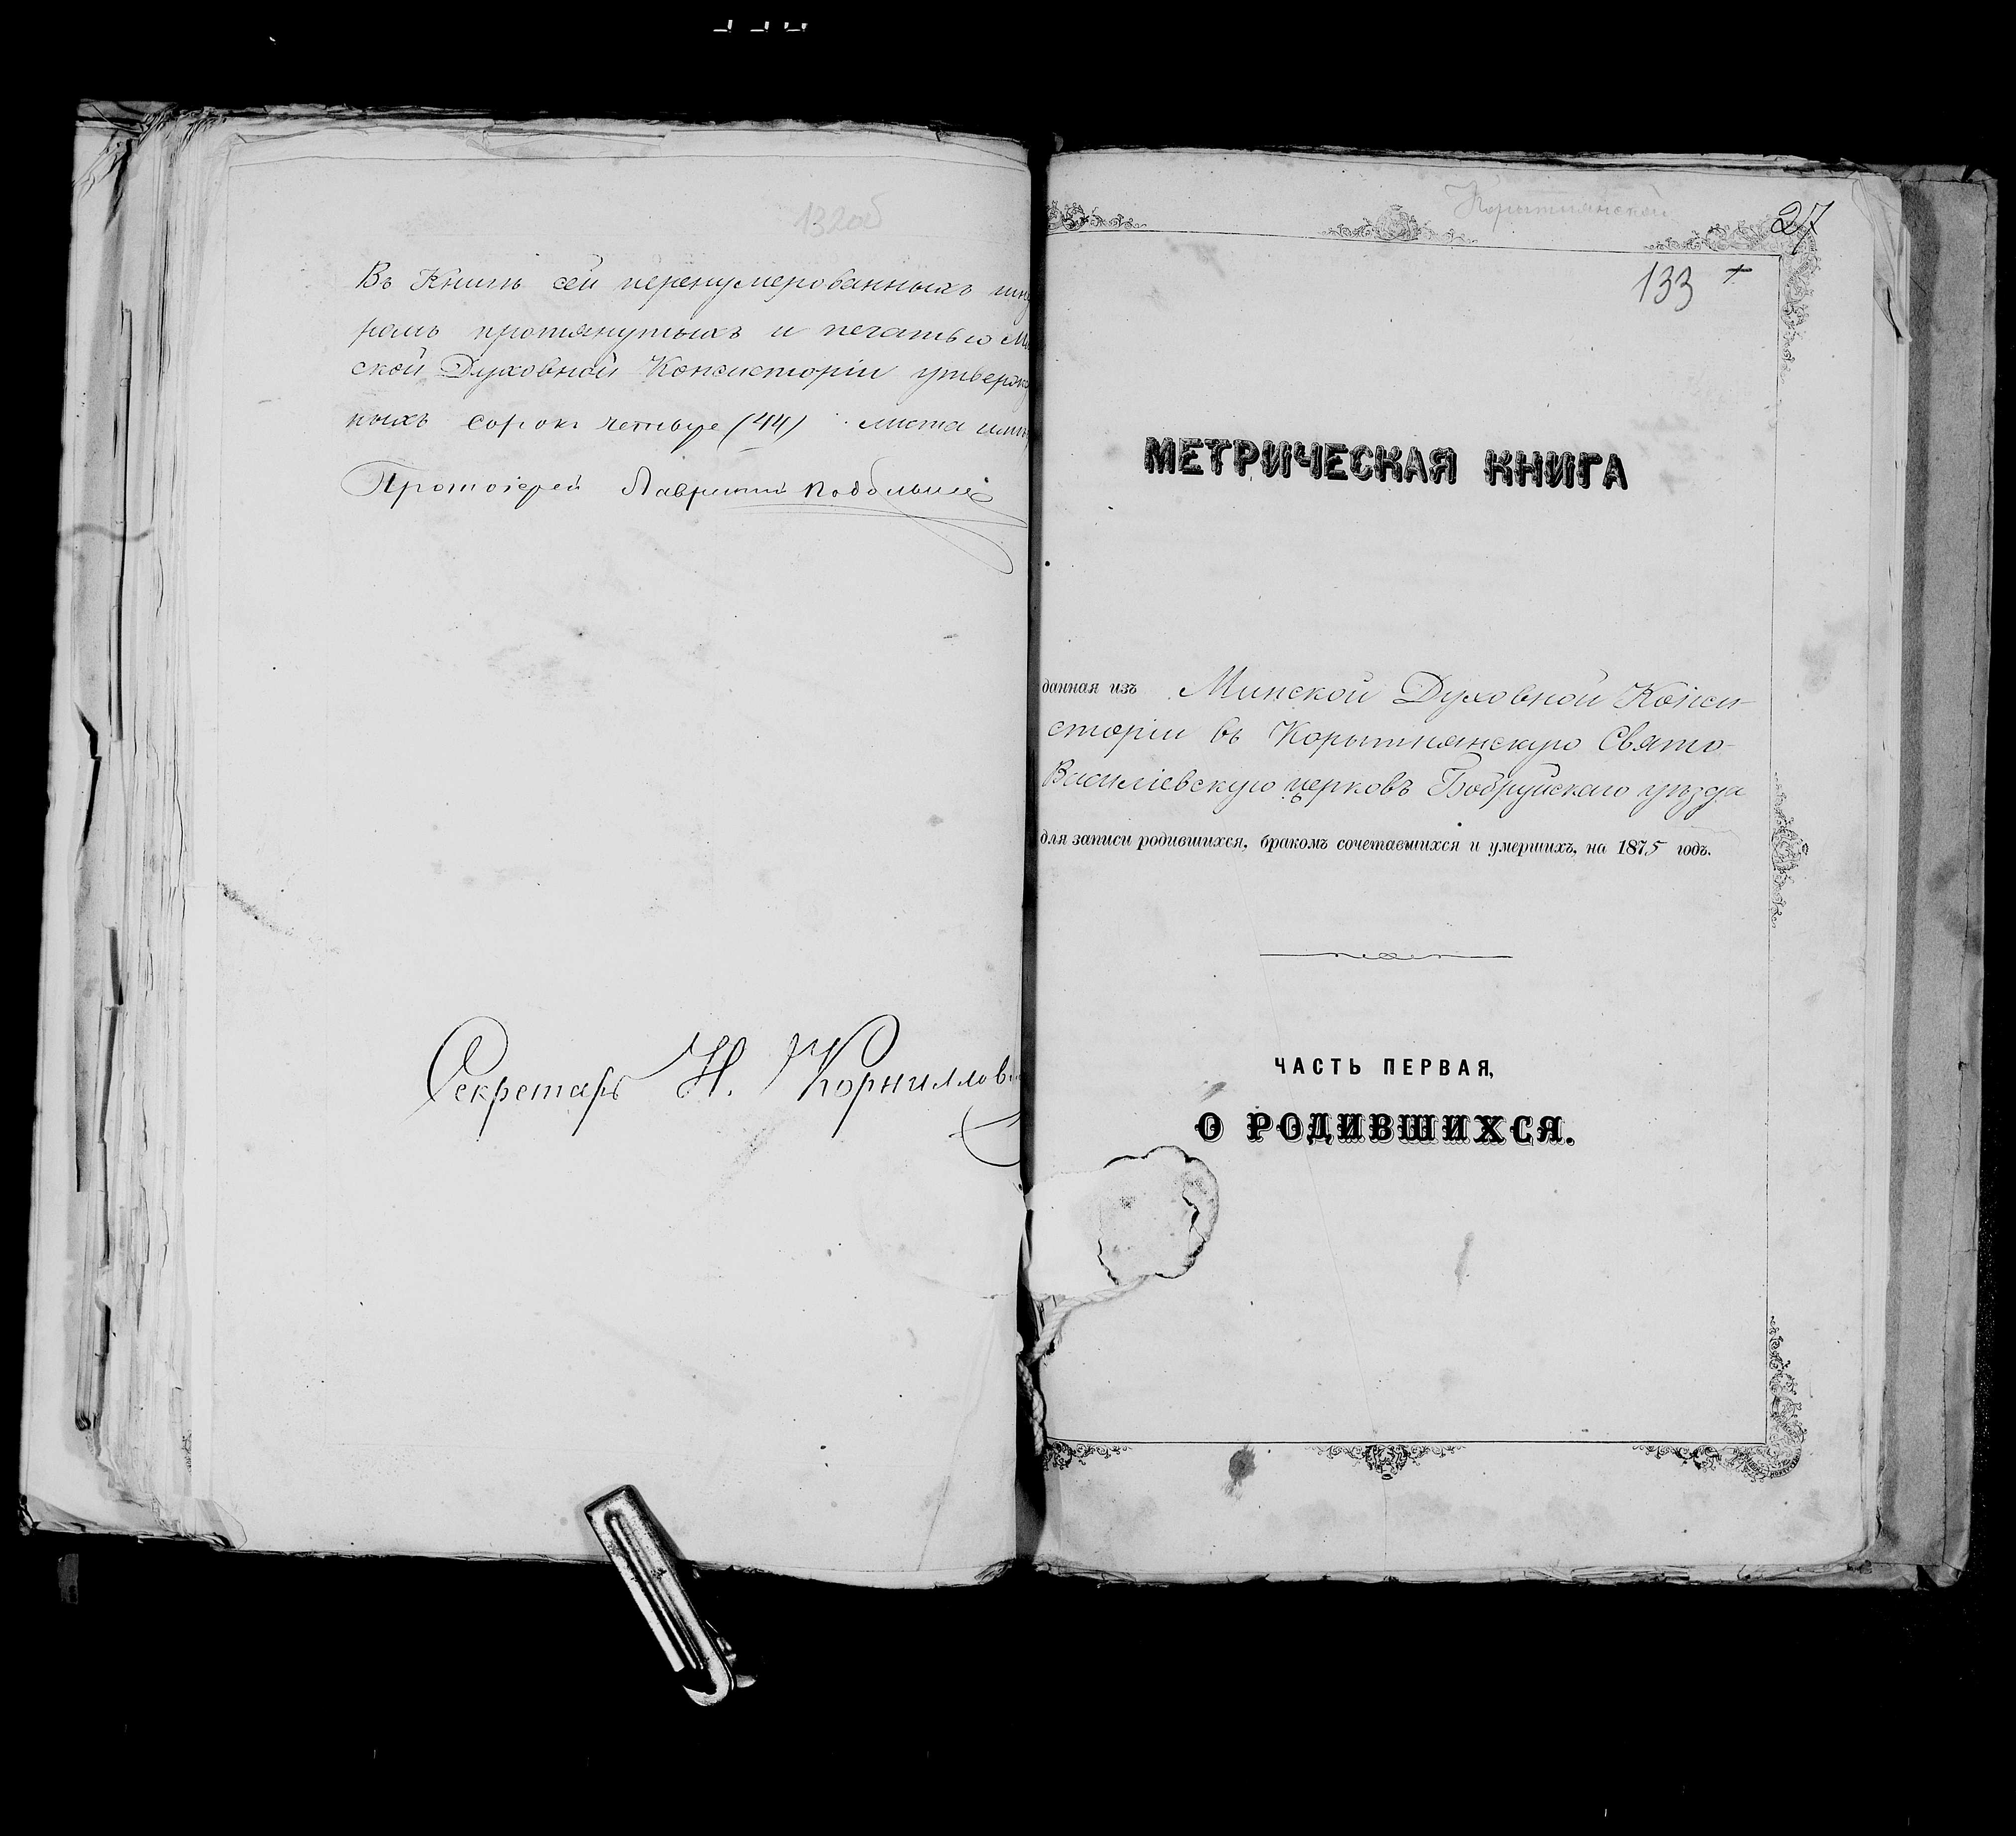 132об
Въ Книгѣ сей перенумерованныхъ шну
ромъ протянутыхъ и печатью Ми
ской Духовной Консисторіи утвержд
ныхъ сорокъ четыре (44) листа
Протоіерей Лаврентій
Секретарь Н. Корнилов
Корытнянской
27
133 +
МЕТРИЧЕСКАЯ КНИГА
данная изъ Минской Духовной Конси-
сторіи въ Корытнянскую Свято-
Василіевскую церковъ Бобруйскаго уѣзда
для записи родившихся, бракомъ сочетавшихся и умершихъ, на 1875 годъ.
ЧАСТЬ ПЕРВАЯ,
О РОДИВШИХСЯ.